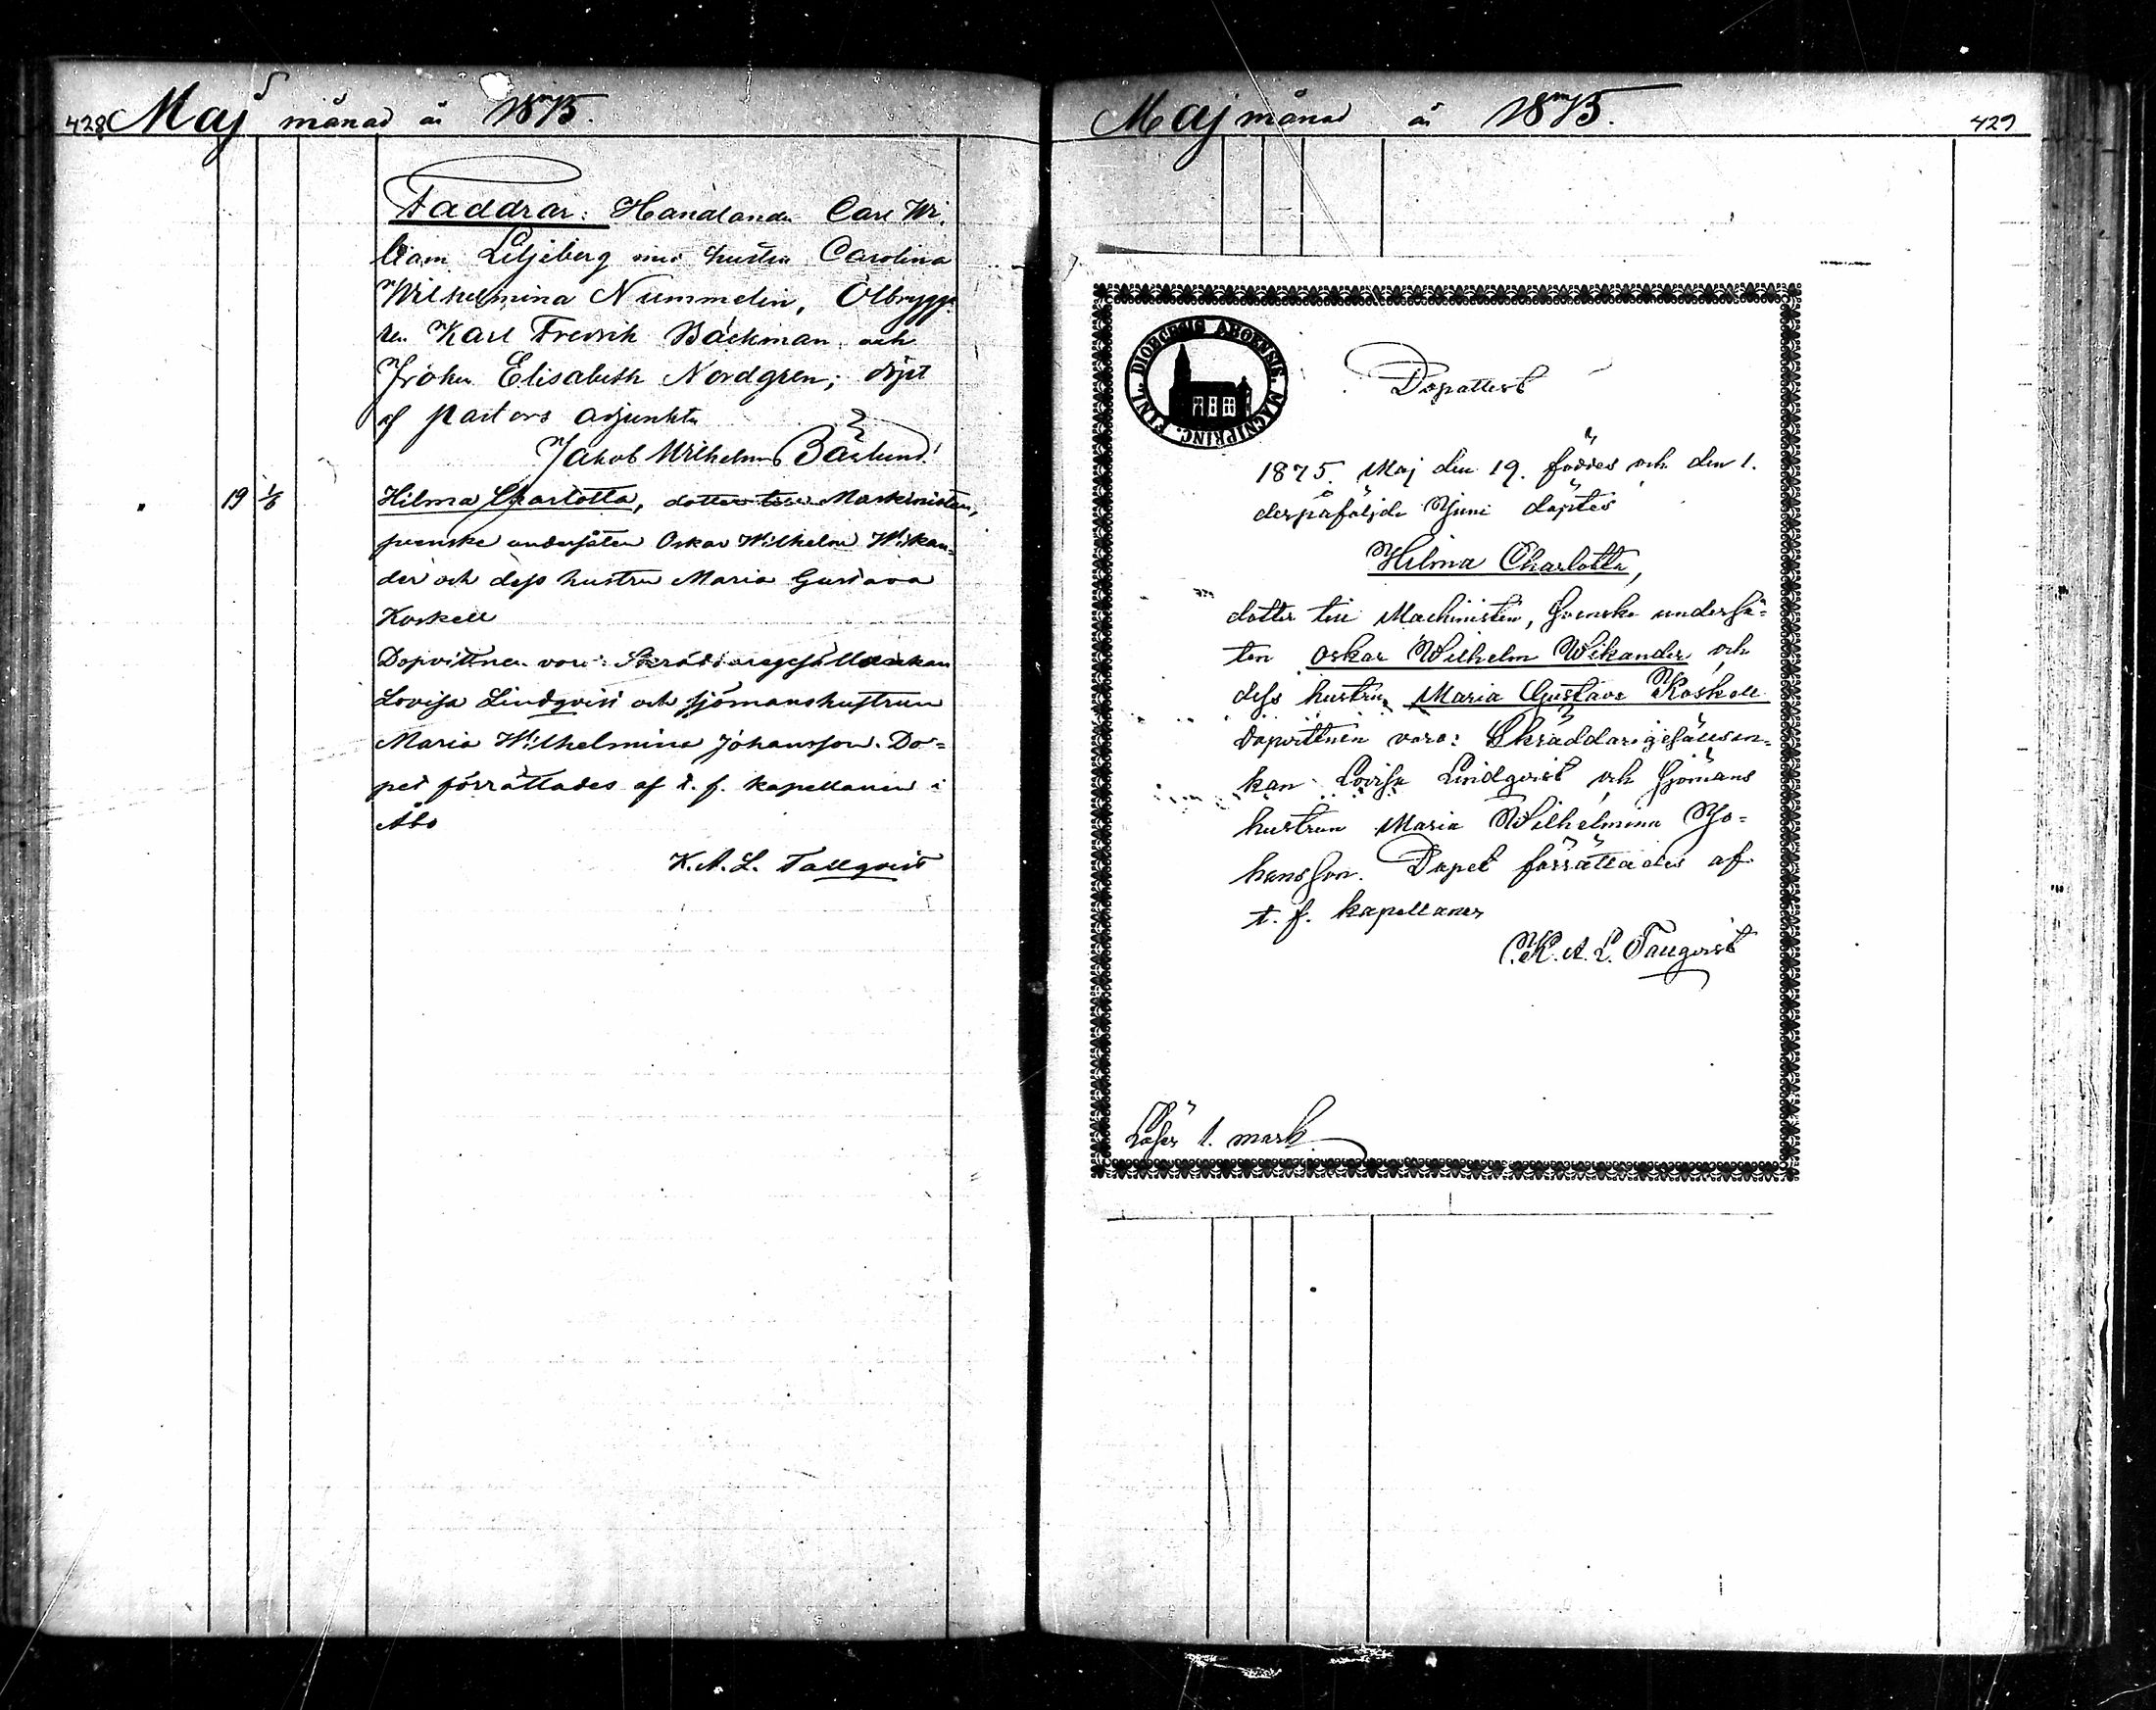 428 Maj månad år 1875.
Faddrar: Handlanden Carl Wi-
liam Liljeberg med hustru Carolina
Wilhelmina Nummelin, Ölbrygga-
ren Karl Fredrik Bäckman och
Fröken Elisabeth Nordgren; döpt
af pastors adjunkten
Jakob Wilhelm Bäslund.
" 19 1/6 Hilma Charlotta, dotter till Maskinisten,
svenske undersåten Oskar Wilhelm Wikan-
der och dess hustru Maria Gustava
Koskell
Dopvittnen voro: Skräddaregesällenkan
Lovisa Lindqvist och sjömanshustrun
Maria Wilhelmina Johansson. Do-
pet förrättades af t. f. kapellanen i
Åbo
K. A. L. Tallqvist
Maj månad år 1875. 429
FINL. DIOECESIS ABOENSIS. MAGNIPRINC.
Dopattest
1875. Maj den 19. föddes och den 1.
derpåföljde Juni döptes
Hilma Charlotta,
dotter till Machinisten, Svenske underså-
ten Oskar Wilhelm Wikander och
dess hustru Maria Gustava Koskell
Dopvittnen voro: Skräddarigesällsen-
kan Lovisa Lindqvist och Sjömans
hustrun Maria Wilhelmina Jo-
hansson. Dopet förrättades af
t. f. kapellanen
K. A. L. Tallqvist
Löser 1. mark